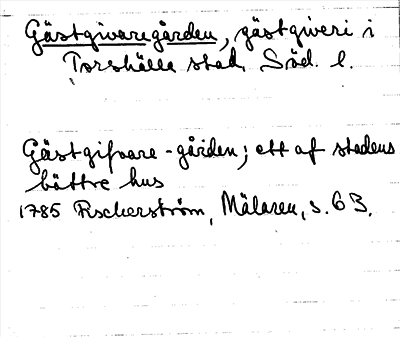 Gästgivaregården, gästgiveri i
Torshälla stad, Söd. l.
Gästgifvare-gården; ett af stadens
bättre hus
1785 Fischerström, Mälaren, s. 63.